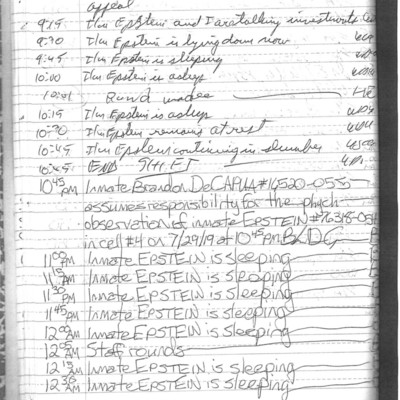 appeal
9:15 I/m Epstein and I are talking investments
9:30 I/m Epstein is lying down now
9:45 I/m Epstein is sleeping
10:00 I/m Epstein is asleep
10:01 Round made
10:15 I/m Epstein is asleep
10:30 I/m Epstein remains at rest
10:45 I/m Epstein continuing in slumber
10:45 END SHIFT
10:45 PM Inmate Brandon DeCAPUA #16520-055
assumes responsibility for the phych
observation of inmate EPSTEIN #76318-054
in cell #4 on 7/29/19 at 10:45 PM BXDG
11:00 PM Inmate EPSTEIN is sleeping
11:15 PM Inmate EPSTEIN is sleeping
11:30 PM Inmate EPSTEIN is sleeping
11:45 PM Inmate EPSTEIN is sleeping
12:00 AM Inmate EPSTEIN is sleeping
12:05 AM Staff rounds
12:15 AM Inmate EPSTEIN is sleeping
12:30 AM Inmate EPSTEIN is sleeping